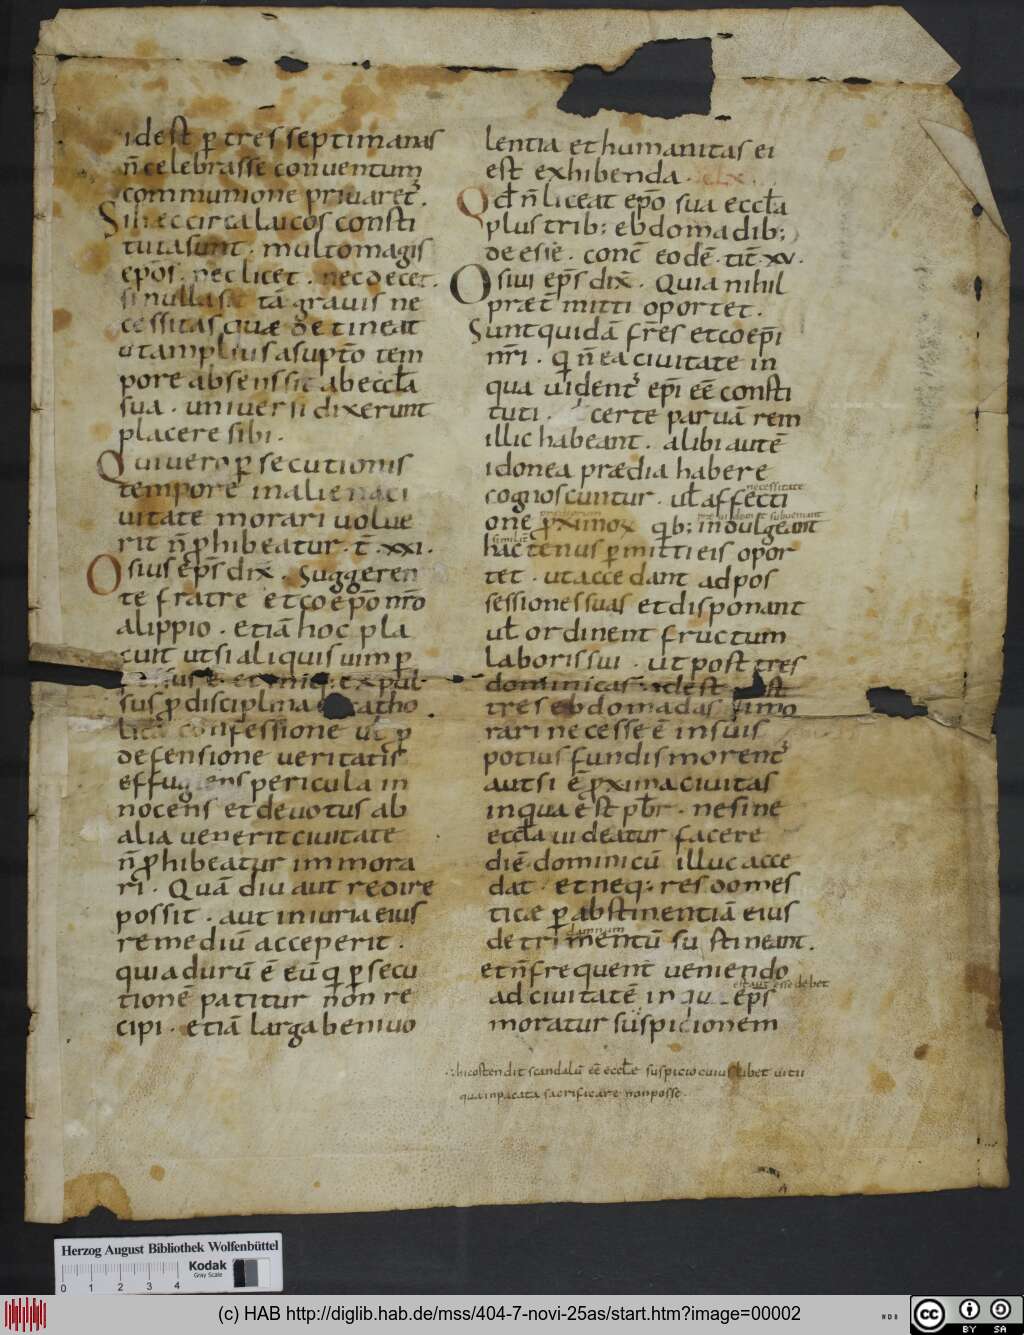 idest ꝑ tres septimanas
n̄ celebrasse conventum
communione privaret᷒.
Si hęc circa laicos consti
tuta sunt · multo magis
ep̄os · nec licet · nec decet·
si nulla sit tā gravis ne
cessitas quæ detineat
ut amplius a supͬto tem
pore absens sit ab eccl̄a
sua · universi dixerunt
placere sibi·
Qui vero ꝑsecutionis
tempore in aliena ci
vitate morari volue
rit n̄ ꝓhibeatur · t̄ · xxi·
Osius ep̄s dix̄ · Suggeren
te fratre et coep̄o nr̄o
alippio · etiā hoc pla
cuit ut si aliquis vim ꝑ
expul
sus ꝓ disciplina & catho
lica confessione vl̄ ꝓ
defensione veritatis
effugiens pericula in
nocens et devotus ab
alia venerit civitate
n̄ ꝓhibeatur immora
ri · Quādiu aut redire
possit · aut iniuria eius
remediū acceperit ·
quia durū ē eū q̄ ꝑsecu
tionē patitur non re
cipi · etiā larga benivo
lentia et humanitas ei
est exhibenda ·
Qd̄ n̄ liceat ep̄o sua eccl̄a
plus trib; ebdomadib;
deesse · conc̄ eodē · tit̄ · xv·
Osius ep̄s dix̄ · Quia nihil
præt̄mitti oportet ·
Sunt quidā fr̄es et coep̄i
nr̄i · q̄ n̄ ea civitate in
qua vident᷒ ep̄i eē consti
tuti · certe parvā rem
illic habeant · alibi autē
idonea prædia habere
necessitate
cognoscuntur · vl̄ affecti
one ꝓximoꝝ q̄b; indulgeant
hactenus ꝑmitti eis opor
tet · ut accedant ad pos
sessiones suas et disponant
vl̄ ordinent fructum
laboris sui · ut post tres
dominicas · idest post
tres ebdomadas · si mo
rari necesse ē in suis
potius fundis morent᷒
aut si ē ꝓxima civitas
in qua est pb̄r · ne sine
eccl̄a videatur facere
diē dominicū illuc acce
dat · et neq; res domes
ticæ ꝑ abstinentiā eius
damnum
detrimentū sustineant·
et n̄ frequent̄ veniendo
ad civitatē in qua ep̄s
moratur suspicionem
hic ostendit scandalū eē eccl̄æ suspicio cuius libet vitii
quain pacata sacrificare non posse·
Herzog August Bibliothek Wolfenbüttel
Kodak
Gray Scale
0 1 2 3 4
(c) HAB http://diglib.hab.de/mss/404-7-novi-25as/start.htm?image=00002
cc BY SA